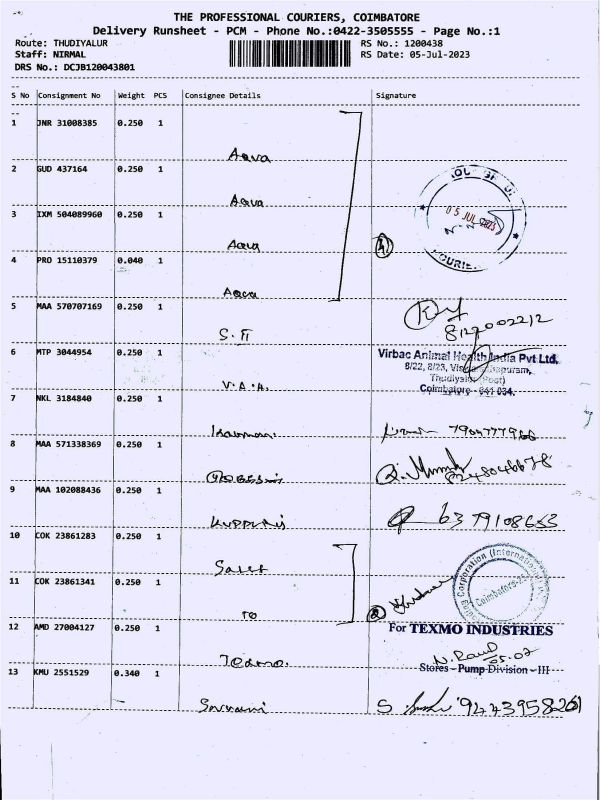 THE PROFESSIONAL COURIERS, COIMBATORE
Delivery Runsheet - PCM - Phone No.:0422-3505555 - Page No.:1
Route: THUDIYALUR RS No.: 1200438
Staff: NIRMAL RS Date: 05-Jul-2023
DRS No.: DCJB120043801
S No Consignment No Weight PCS Consignee Details Signature
1 JNR 31008385 0.250 1
Aqua
2 GUD 437164 0.250 1
Aqua
05 JUL 2023
3 IXM 504089960 0.250 1
Aqua
4
4 PRO 15110379 0.040 1
Aqua
5 MAA 570707169 0.250 1
8122002212
S.
6 MTP 3044954 0.250 1 Virbac Animal Health India Pvt Ltd.
8/22, 8/23,
Thudiyalur (Post)
V.A.A. Coimbatore - 641 034.
7 NKL 3184840 0.250 1
8 MAA 571338369 0.250 1
8248046678
9 MAA 102088436 0.250 1
6379108653
10 COK 23861283 0.250 1
Sales
11 COK 23861341 0.250 1
TO
2
12 AMD 27004127 0.250 1 For TEXMO INDUSTRIES
Texmo.
Stores - Pump Division - III
13 KMU 2551529 0.340 1
S 9443958261